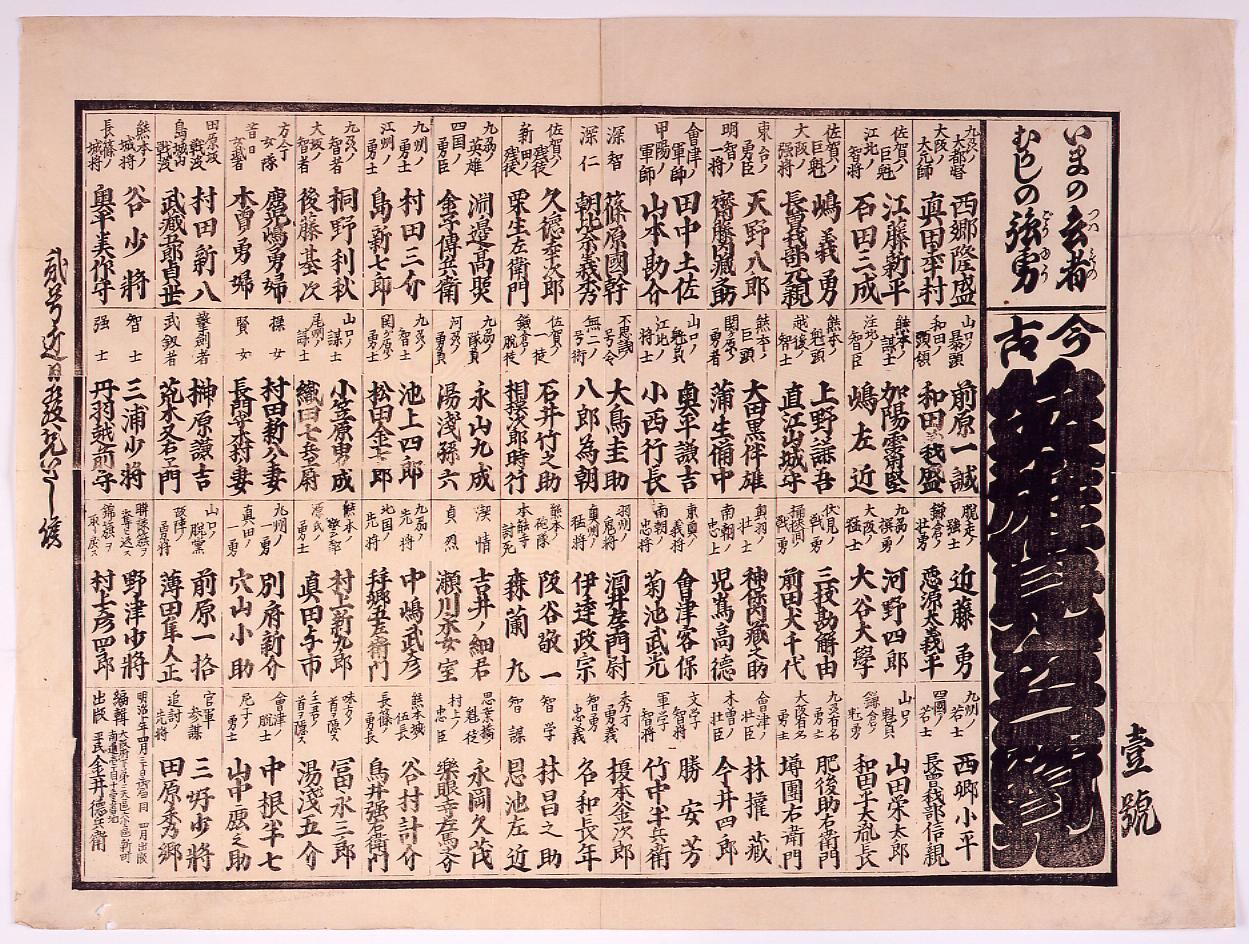 壹號
いまの玄者
むかしの強勇
今古英雄見立一覧
九州ノ大都督 西郷隆盛
大阪ノ大元師 眞田幸村
佐賀ノ巨魁 江藤新平
江北ノ智將 石田三成
佐賀ノ巨魁 嶋義勇
大阪ノ勇將 長曽我部元親
東台ノ勇臣 天野八郎
明智ノ一將 齋藤内藏之助
會津ノ軍師 田中土佐
甲陽ノ軍師 山本勘介
深智 篠原國幹
深仁 朝比奈義秀
佐賀ノ残徒 久德幸次郎
新田ノ残徒 栗生左衛門
九州ノ英雄 淵邉高照
四国ノ勇士 金子傳兵衛
九州ノ勇士 村田三介
江州ノ勇士 島新七郎
九州ノ智者 桐野利秋
大坂ノ智者 後藤基次
方今ノ女隊 鹿児嶋勇婦
昔日ノ女豪 木曽勇婦
田原坂戦没 村田新八
島城内戦没 武藏五郎貞世
熊本ノ城將 谷少將
長篠ノ城將 奥平美作守
山口ノ暴頭 前原一誠
和田ノ頭領 和田義盛
熊本ノ謀士 加陽霽堅
江北ノ智臣 嶋左近
熊本ノ魁頭 上野謙吾
越後ノ智士 直江山城守
熊本ノ巨頭 大田黒伴雄
関ヶ原ノ勇者 蒲生備中
山口ノ魁首 奥平謙吉
江北ノ將士 小西行長
不思議ノ号令 大鳥圭助
無二ノ弓術 八郎為朝
佐賀ノ一徒 石井竹之助
鎌倉ノ脱徒 相摸次郎時行
九州ノ隊頭 永山九成
河州ノ勇士 湯淺孫六
九州ノ智士 池上四郎
関ヶ原ノ勇士 松田金七郎
山口ノ謀士 小笠原男成
尾州ノ謀士 織田七兵尉
操女 村田新八妻
賢女 長門守木村妻
撃劍者 榊原謙吉
武釼者 荒木又右エ門
智士 三浦少將
强士 丹羽越前守
脱走ノ強士 近藤勇
鎌倉ノ壮勇 惡源太義平
九州ノ撰勇 河野四郎
大阪ノ猛士 大谷大學
伏見ノ戦勇 三枝勘解由
桶挾間ノ戦勇 前田犬千代
奥羽ノ壮士 神保内藏之助
南朝ノ忠士 児島高德
東奥ノ義將 會津容保
南朝ノ忠將 菊池武光
羽州ノ鬼將 酒井左門尉
奥州ノ猛將 伊達政宗
熊本ノ砲隊 阪谷敬一
本能寺討死 森蘭丸
深情 吉井ノ細君
貞烈 瀬川采女室
九州ノ先將 中嶋武彦
北国ノ先將 拜郷五左衛門
熊本ノ撃勇 村上新九郎
源氏ノ勇士 眞田与市
九州ノ一勇 別府新介
真田ノ一勇 穴山小助
山口ノ脱黨 前原一格
難陣ノ勇將 薄田隼人正
聯隊旗ヲ奪返ス 野津少將
錦旗ヲ取戻ス 村上彦四郎
九州ノ若士 西郷小平
四國ノ若士 長曽我部信親
山口ノ魁首 山田栄太郎
鎌倉ノ魁勇 和田平太胤長
九州有名ノ勇士 肥後助右衛門
大阪有名ノ勇士 塙團右衛門
會津ノ壮臣 林擢藏
木曽ノ壮臣 今井四郎
文学ノ智將 勝安芳
軍学ノ智將 竹中半兵衛
秀才 榎本金次郎
智勇忠義 名和長年
智学 林昌之助
智謀 恩池左近
思案橋ノ魁徒 永岡久茂
村上ノ忠臣 樂眼寺左馬介
熊本城伍長 谷村計介
長篠ノ勇長 鳥井强右衛門
味方ノ首ヲ隠ス 冨永三郎
主君ノ首ヲ隠ス 湯淺五介
會津ノ脱士 中根半七
尼子ノ勇士 山中鹿之助
官軍参謀 三好少將
追討ノ先將 田原秀郷
明治十年四月三十日御届 同四月出版
編輯 大阪府下第三大區
出版 平民 金井德兵衛
貳号近日出版